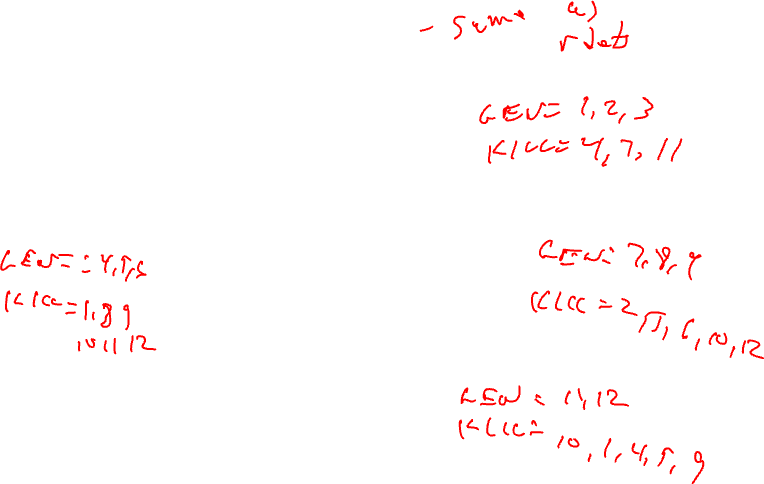 - same as
GEN= 1, 2, 3
KILL= 4, 7, 11
GEN= : 4, 5, 6
KILL = 1, 8 9
10 11 12
GEN= 7, 8, 9
KILL = 2, 5, 6, 10, 12
GEN = 11, 12
KILL= 10, 1, 4, 5, 9